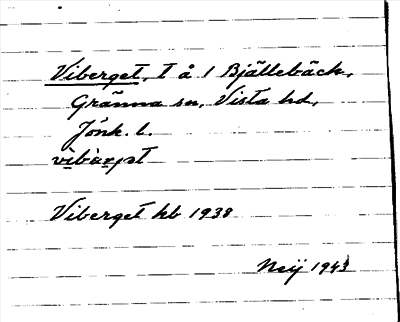 Viberget, t å 1 Bjällebäck,
Gränna sn, Vista hd,
Jönk. l.
Viberget kb 1938
Neij 1943